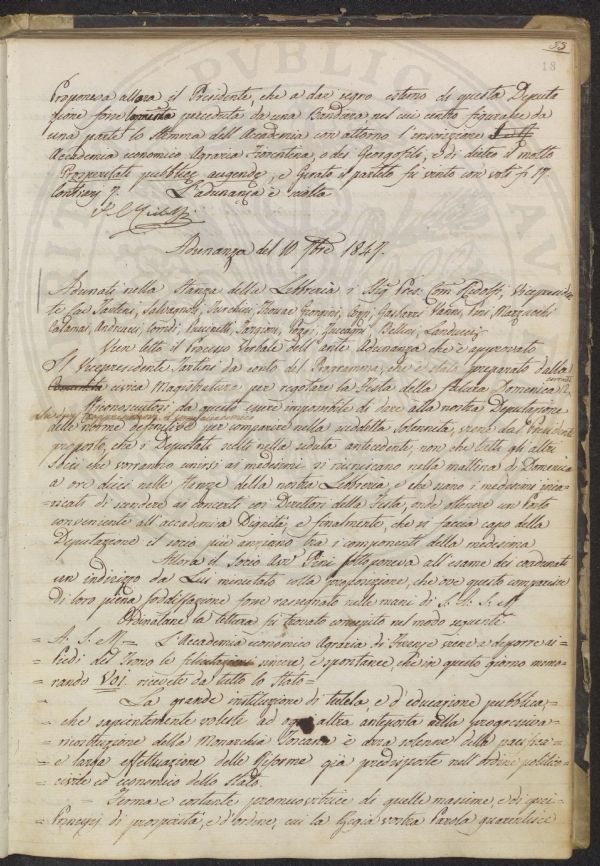 55
18
Proponeva allora il Presidente, che a dar segno esterno di questa Deputa
zione fosse preceduta da una Bandiera nel cui centro figurasse da
una parte lo Stemma dell'Accademia con attorno l'inscrizione
Accademia economico Agraria Fiorentina, o dei Georgofili, e di dietro il motto
Prosperitati publicæ augendæ, e Girato il partito fu vinto con voti fi 17.
Contrarj 7. L'adunanza è sciolta
Adunanza del 10 7bre 1847.
Adunati nella Stanza della Libreria i Sigg. Pres. Ridolfi, Vicepreside
te Cav. Tartini, Salvagnoli, Turchini, Thouar, Giorgini, Gazzeri, Vanni, Pini, Mazzuchi
Calamai, Andreucci, Corridi, Puccinotti, Sanzoni, Pozzi, Zuccagni, Bellini, Landucci
Vien letto il Processo Verbale dell'ante. Adunanza che è approvato
Il Vicepresidente Tartini dà conto del Programma, che è stato preparato dalla
civica Magistratura per regolare la Festa della futura Domenica 12 corrente
Riconosciutosi da questo essere impossibile di dare alla nostra Deputazione
delle norme definitive per comparire nella suddetta solennità, viene dal Presidente
proposto, che i Deputati scelti nella seduta antecedente, non che tutti gli altri
Socii che vorranno unirsi ai medesimi si riuniscano nella mattina di Domenica
a ore dieci nelle Stanze della nostra Libreria, e che siano i medesimi inca
ricati di scendere ai concerti coi Direttori della Festa, onde ottenere un Posto
conveniente all'accademica Dignità, e finalmente, che si faccia capo della
Deputazione il socio più anziano tra i componenti della medesima
Allora il Socio Avv. Pini sottoponeva all'esame dei coadunati
un indirizzo da Lui minutato colla proposizione, che ove questo comparisse
di loro piena soddisfazione fosse rassegnato nelle mani di S. A. I. e R.
Ordinatane la lettura fu trovato concepito nel modo seguente
= A. I. e R. = L'Accademia economico Agraria di Firenze viene a deporre ai =
= Piedi del Trono le felicitazioni sincere, e spontanee che in questo giorno memo=
=rando Voi ricevete da tutto lo Stato =
La grande instituzione di tutela, e d'educazione pubblica, =
= che sapientemente voleste ad ogni altra anteposta nella progressiva =
= ricostituzione della Monarchia Toscana è arra solenne della pacifica =
= e larga effettuazione delle Riforme già predisposte nell'ordine politico =
= civile ed economico dello Stato.
= Ferma e costante promuovitrice di quelle massime, e di quei =
= Principj di prosperità, e d'ordine, cui la Regia vostra Parola guarentisce